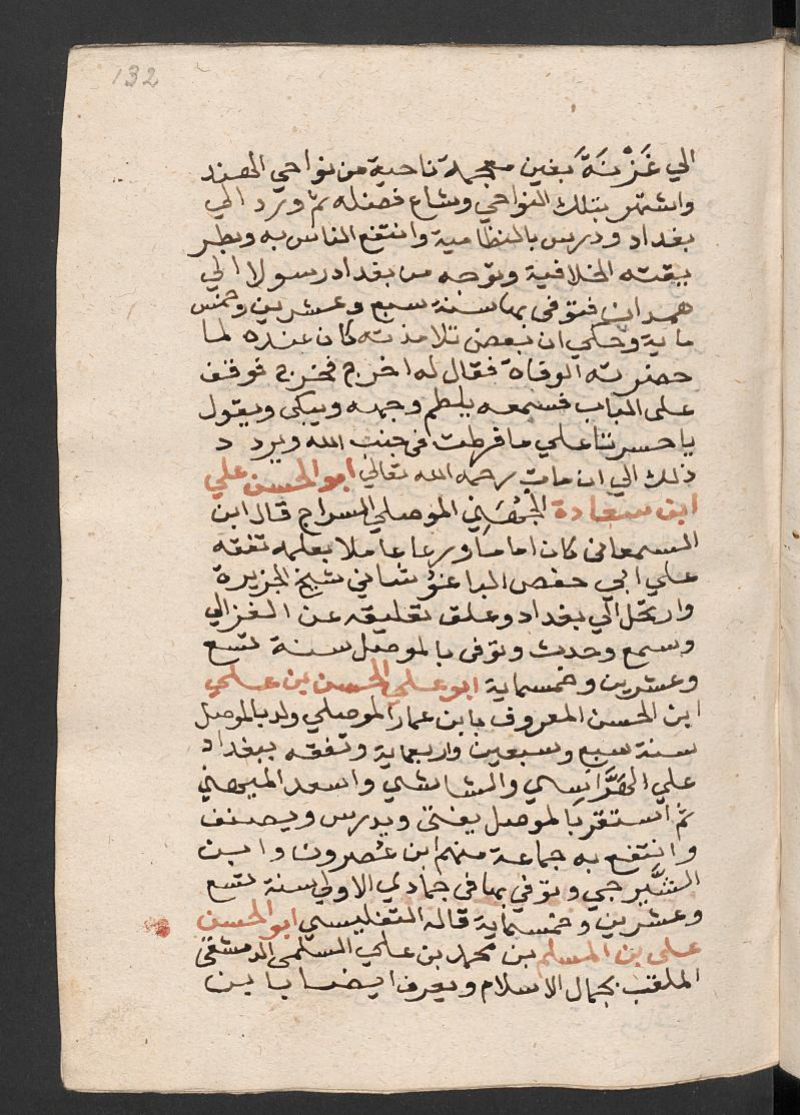 132
الي غَزْنَةَ بغين معجمة ناحية من نواحي الهند
واشتهر بتلك النواحي وشاع فضله ثم ورد الي
بغداد ودرس بالنظامية وانتفع الناس به وبطر
يقته الخلافية وتوجه من بغداد رسولا الي
همدان فتوفى بها سنة سبع وعشرين وخمس
ماية وحكي ان بعض تلامذته كان عنده لما
حضرته الوفاة فقال له اخرج فخرج فوقف
على الباب فسمعه يلطم وجهه ويبكى ويقول
يا حسرتا علي ما فرطت فى جنب الله ويرد د
ذلك الي ان مات رحمه الله تعالي ابو الحسن علي
ابن سعادة الجُهَنِي الموصلي السراج قال ابن
السمعانى كان اماما ورعا عاملا بعلمه تفقه
علي ابي حفص الباغوشاني شيخ الجزيرة
وارتحل الي بغداد وعلق تعليقه عن الغزالي
وسمع وحدث وتوفى بالموصل سنة تسع
وعشرين وخمسماية ابو علي الحسن بن علي
ابن الحسن المعروف بابن عمار الموصلي ولد بالموصل
سنة سبع وسبعين واربعماية وتفقه ببغداد
علي الهَرَّاسي والشاشي واسعد الميهني
ثم استقر بالموصل يفتى ويدرس ويصنف
وانتفع به جماعة منهم ابن عصرون وابن
الشَّيرجي وتوفي بها فى جمادي الاولي سنة تسع
وعشرين وخمسماية قاله التفليسي ابو الحسن
على بن المسلم بن محمد بن علي السلمى الدمشقى
الملقب بجمال الاسلام ويعرف ايضا بابن